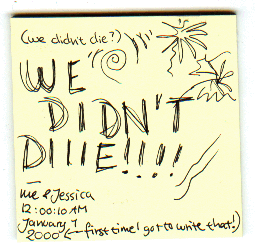 (we didn't die?)
WE
DIDN'T
DIIIE!!!!
me & Jessica
12:00:10 AM
January 1
2000 ← first time I got to write that!)